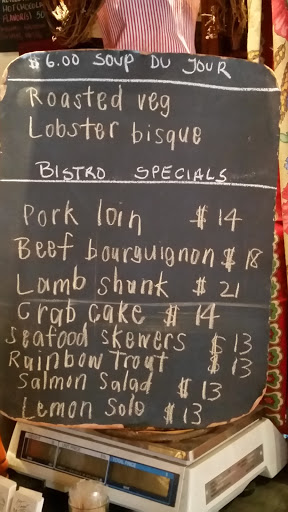 $6.00 SOUP DU JOUR
Roasted veg
Lobster bisque
BISTRO SPECIALS
Pork loin $14
Beef bourguignon $18
Lamb shank $21
Crab cake $14
Seafood skewers $13
Rainbow Trout $13
Salmon Salad $13
Lemon Solo $13